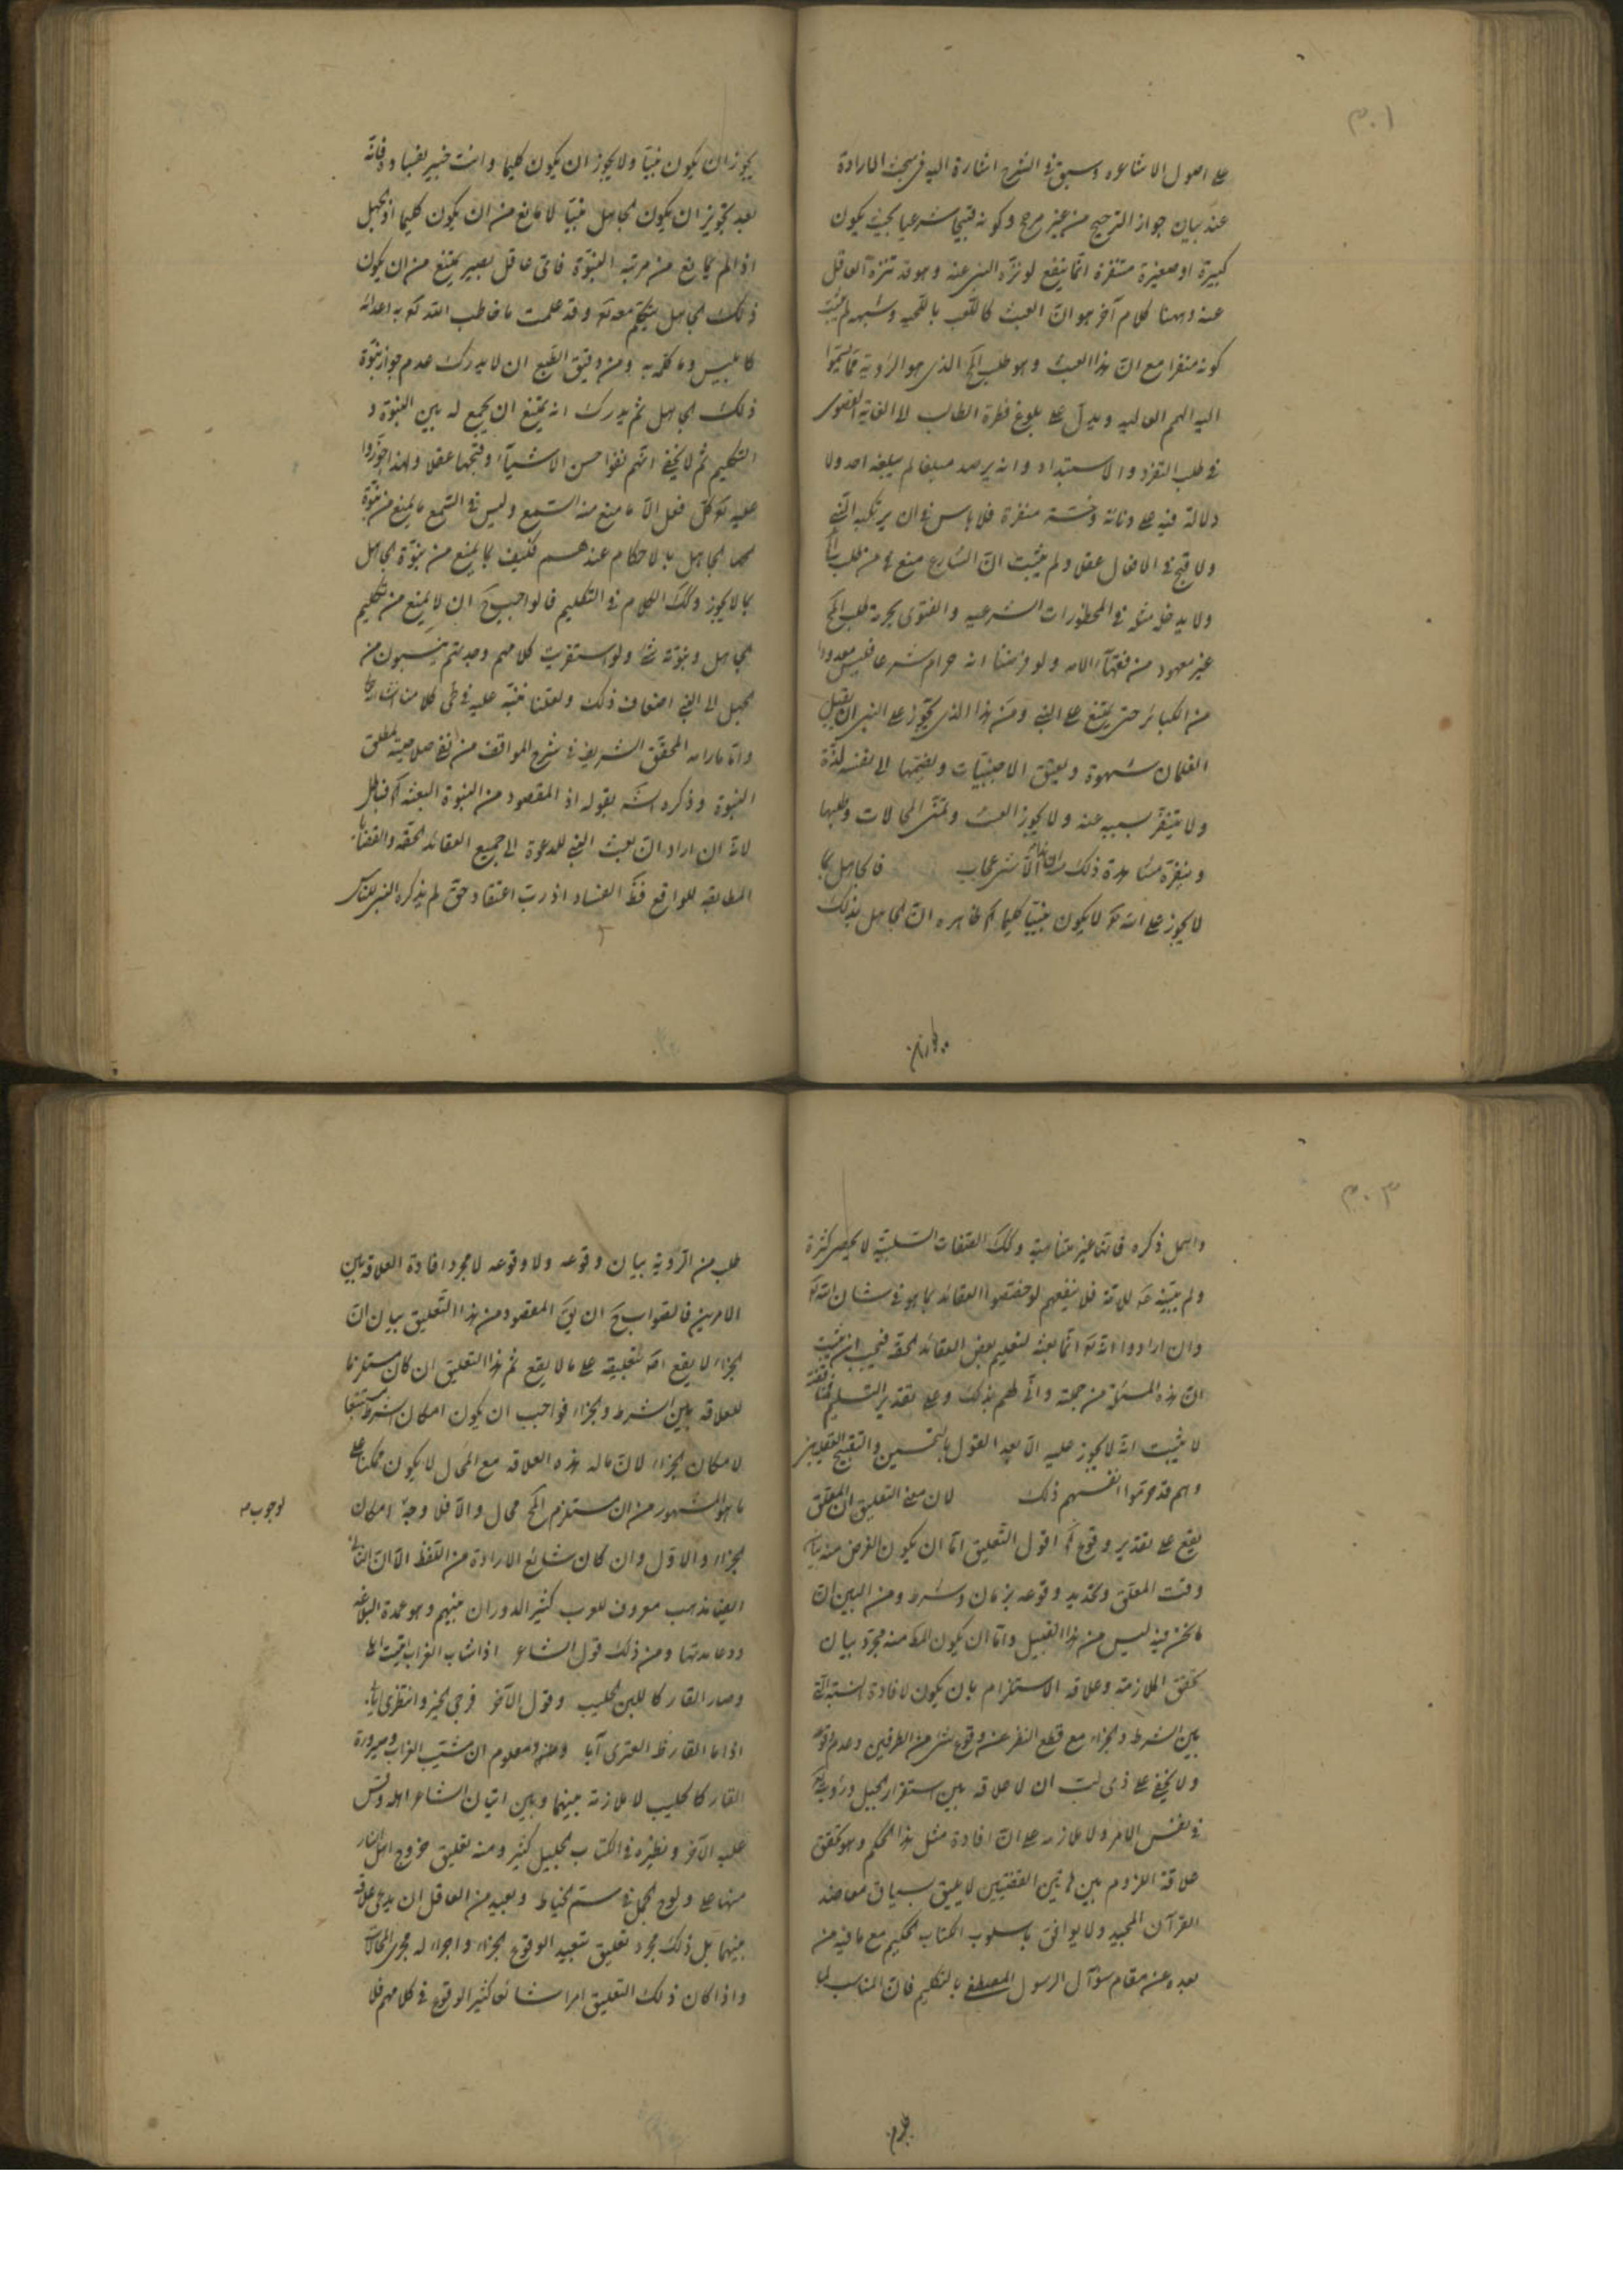 ٣٠١
على اصول الاشاعرة وسبق فى الشرح اشارة اليه فى مبحث الارادة
عند بيان جواز الترجيح من غير مرجح وكونه قبيحا شرعيا بحيث يكون
كبيرة او صغيرة منفرة انما ينفع لو نزه النبى عنه وهو قد تنزه العاقل
عنه وههنا كلام آخر هو ان العبث كاللعب باللحية وشبهه لم يثبت
كونه منفرا مع ان هذا العبث وهو طلب المح الذى هو الرؤية
اليه الهمم العاليه ويدل على بلوغ فطرة الطالب الى الغاية القصوى
فى طلب التفرد والاستبداد وانه يرصد مبلغا لم يبلغه احد ولا
دلالة فيه على دنائة وخسة منفرة فلا باس فى ان يرتكبه النبى
ولا قبح فى الافعال عقلا ولم يثبت ان الشارع منع من طلب
ولا يدخل مثله فى المحظورات الشرعيه والفتوى بحرمة طلب المح
غير معهود من فقهآء الامه ولو فرضنا انه حرام شرعا فليس معدودا
من الكبائر حتى يمتنع على النبى ومن هذا الذى يجوز على النبى ان يقبل
الغلمان شهوة ويعشق الاجنبيات ويضمها الى نفسه لذة
ولا يتنفر بسببه عنه ولا يجوز العبث وتمنى المحالات وطلبها
وينفره مشاهدة ذلك ان هذا الا شئ عجاب فالجاهل بما
لا يجوز على الله تع لا يكون نبيا كليما آه ظاهره ان الجاهل بذلك
يجوز ان يكون نبيا ولا يجوز ان يكون كليما وانت خبير بفساده فانه
بعد تجويز ان يكون الجاهل نبيا لا مانع من ان يكون كليما اذ الجهل
اذا لم يمانع من مرتبه النبوة فاى عاقل بصير يمتنع من ان يكون
ذلك الجاهل يتكلم معه تع وقد علمت ما خاطب الله تع به اعدائه
كابليس وما كلمه به ومن دقيق الطبع ان لا يدرك عدم جواز نبوة
ذلك الجاهل ثم يدرك انه يمتنع ان يجمع له بين النبوة و
التكليم ثم لا يخفى انهم نفوا حسن الاشيآء وقبحها عقلا ولهذا جوزوا
عليه تع كل فعل الا ما منع منه السمع وليس فى السمع ما يمنع من نبوة
الجاهل بالاحكام عندهم فكيف بما يمنع من نبوة الجاهل
بما لا يجوز وكك الكلام فى التكليم فالواجب ح ان لا يمنع من تكليم
الجاهل ونبوته شئ ولو استقريت كلامهم وجدتهم ينسبون من
الجهل الى النبى اضعاف ذلك ولعلنا ننبه عليه فى طى كلامنا
واما ما رامه المحقق الشريف فى شرح المواقف من نفى صلاحيته مطلق
النبوة وذكره الش بقوله اذ المقصود من النبوة البعثه آه فباطل
لانه ان اراد ان بعث النبى للدعوة الى جميع العقائد الحقه والقضايا
المطابقه للواقع فظ الفساد اذ رب اعتقاد حق لم يذكره النبى للناس
٣٠٣
واهمل ذكره فانها غير متناهية وكك الصفات السلبية لا يحصر كثرة
ولم يبينه صه للامة فلا ينفعهم لو خصصوا العقائد بما هو فى شان الله تع
وان ارادوا انه تع انما بعثه لتعليم بعض العقائد الحقه فيجب ان يثبت
ان هذه المسئلة من جملته وانى لهم بذلك وعلى تقدير التسليم
لا يثبت انه لا يجوز عليه الا بعد القول بالتحسين والتقبيح العقليين
وهم قد حرموا انفسهم ذلك لان معنى التعليق ان المعلق
يقع على تقدير وقوع آه اقول التعليق اما ان يكون الغرض منه بيان
وقت المعلق وتحديد وقوعه بزمان وشرط ومن البين ان
ما نحن فيه ليس من هذا القبيل واما ان يكون المط منه مجرد بيان
تحقق الملازمة وعلاقه الاستلزام بان يكون لافادة النسبة التى
بين الشرط والجزاء مع قطع النظر عن وقوع شئ من الطرفين وعدم وقوعه
ولا يخفى على ذى لب ان لا علاقه بين استقرار الجبل ورؤيته تع
فى نفس الامر ولا ملازمه على ان افادة مثل هذا الحكم وهو تحقق
علاقة اللزوم بين هاتين القضيتين لا يليق بسياق مقاصد
القرآن المجيد ولا يوافق باسلوب الكتاب الحكيم مع ما فيه من
بعده عن مقام سؤآل الرسول المصطفى بالتكليم فان المناسب لما
طلب من الرؤية بيان وقوعه ولا وقوعه لا مجرد افادة العلاقه بين
الامرين فالصواب ح ان يق المقصود من هذا التعليق بيان ان
الجزاء لا يقع اصلا بتعليقه على ما لا يقع ثم هذا التعليق ان كان مستلزما
للعلاقه بين الشرط والجزاء فواجب ان يكون امكان الشرط مستتبعا
لامكان الجزاء لان ما له هذه العلاقه مع المحال لا يكون ممكنا على
ما هو المشهور من ان مستلزم المح محال والا فلا وجه امكان
لوجوب م
الجزاء والاول وان كان شائع الارادة من اللفظ الا ان الثانى
ايضا مذهب معروف للعرب كثير الدوران بينهم وهو عمدة البلاغه
ودعامتها ومن ذلك قول الشاعر اذا شاب الغراب اتيت اهلى
وصار القار كاللبن الحليب وقول الآخر فرجى الخير وانتظرى ايابى
اذا ما القارظ العنزى آبا وظنه ومعلوم ان مشيب الغراب وصيرورة
القار كالحليب لا ملازمة بينهما وبين اتيان الشاعر اهله وقس
عليه الآخر ونظيره فى الكتاب الجليل كثير ومنه تعليق خروج اهل النار
منها على ولوج الجمل فى سم الخياط وبعيد من العاقل ان يدعى علاقه
بينهما بل ذلك مجرد تعليق تبعيد الوقوع الجزاء واجراء له مجرى المحالات
واذا كان ذلك التعليق امرا شائعا كثير الوقوع فى كلامهم فلا